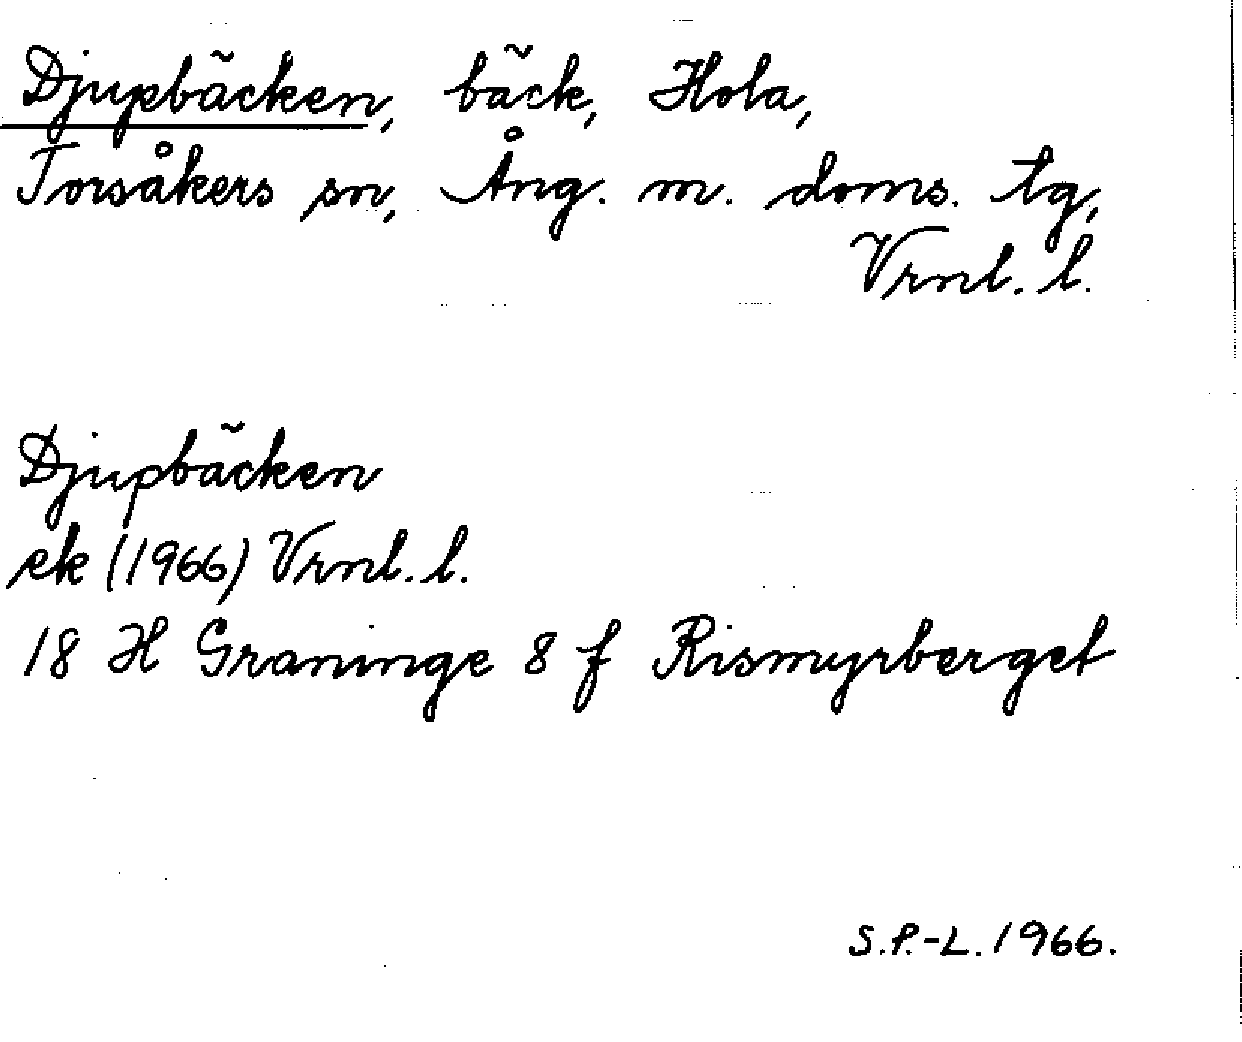 Djupbäcken, bäck, Hola,
Torsåkers sn, Ång. m. doms. tg,
Vrnl. l.
Djupbäcken
ek (1966) Vrnl. l.
18 H Graninge 8 f Rismyrberget
S.P.-L. 1966.